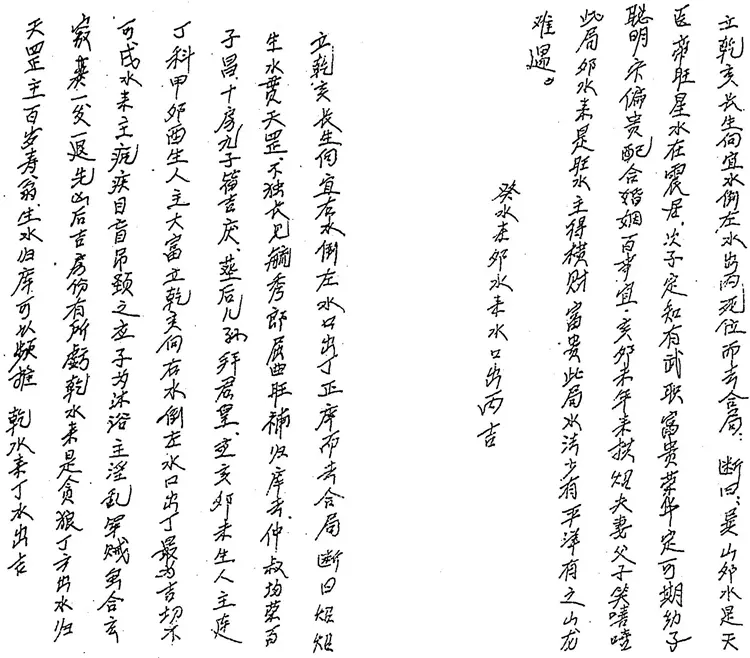 立乾亥长生向宜水倒左水出丙死位而去合局，断曰：巽山卯水是天
医帝旺星水在震居，次子定知有武职富贵荣华定可期幼子
聪明宋偏贵配合婚姻百事宜，亥卯未年来拱照夫妻父子笑嘻嘻
此局卯水来是旺水主得横财富贵此局水法少有平洋有之山龙
难遇。
癸水来卯水来水口出丙吉
立乾亥长生向宜右水倒左水口出丁正库而去合局断曰
生水贯天罡，不独长儿毓秀郎屈曲旺神归库去，仲叔均荣百
子昌，十房九子皆吉庆，葬后儿孙拜君皇，立亥卯未生人主连
丁科甲卯酉生人主大富立乾亥向右水倒左水口出丁最为吉切不
可戌水来主疯疾目盲吊颈之应子为沐浴主淫乱军贼
寂寞一发一退先凶后吉房份有所亏乾水来是贪狼丁方出水归
天罡主百岁寿翁生水归库可以频推 乾水来丁水出吉